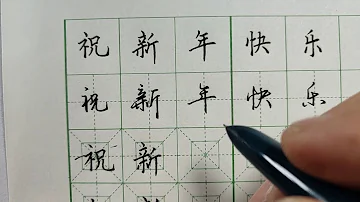 祝新年快乐
祝新年快乐
祝新